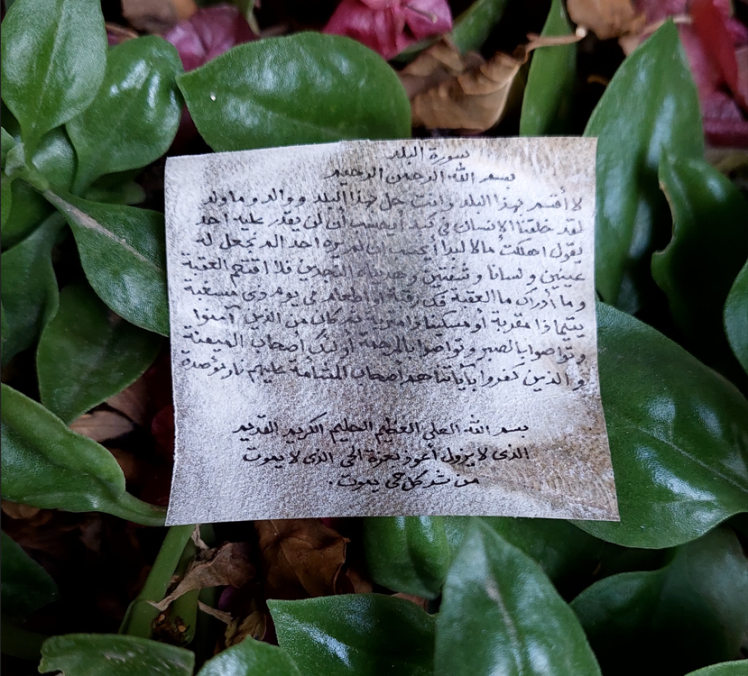 سورة البلد
بسم الله الرحمن الرحيم
لا أقسم بهذا البلد وانت حل بهذا البلد ووالد وما ولد
لقد خلقنا الانسان فى كبد أيحسب ان لن يقدر عليه احد
يقول اهلكت مالا لبدا أيحسب ان لم يره احد الم نجعل له
عينين ولسانا و شفتين وهديناه النجدين فلا اقتحم العقبة
وما أدراك ما العقبة فك رقبة او اطعام فى يوم ذى مسغبة
يتيما ذا مقربة أو مسكينا ذا متربة ثم كان من الذين آمنوا
وتواصوا بالصبر وتواصوا بالمرحمة أولئك اصحاب الميمنة
والذين كفروا بآياتنا هم اصحاب المشئامة عليهم نار مؤصدة
بسم الله العلى العظيم الحليم الكريم القديم
الذى لا يزول أعوذ بعزة الحى الذى لا يموت
من شر كل حى يموت.